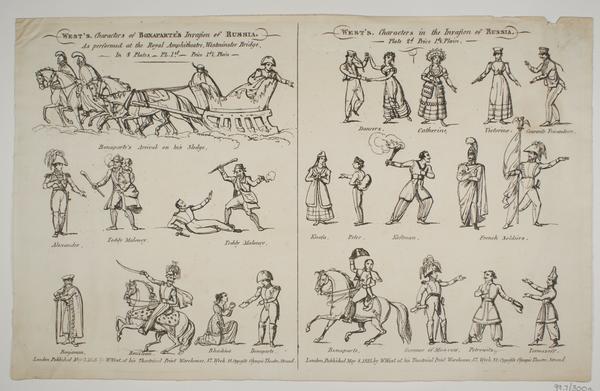 WEST'S, Characters of BONAPARTE'S Invasion of RUSSIA.
As performed at the Royal Amphitheatre, Westminster Bridge,
In 8 Plates, Pl. 1st Price 1d. Plain
Bonaparte's Arrival on his Sledge.
Alexander.
Teddy Maloney.
Teddy Maloney.
Benjamin.
Bonaparte.
London, Published May 8, 1825, by W. West, at his Theatrical Print Warehouse, 57, Wych St. Opposite Olympic Theatre, Strand.
WEST'S, Characters in the Invasion of RUSSIA.
Plate 2d. Price 1d. Plain,
Dancers.
Catherine,
Victorine.
Koufa.
Peter.
French Soldiers.
Bonaparte,
Governor of Moscow,
Petrowitz,
London, Published May 8, 1825, by W. West, at his Theatrical Print Warehouse, 57, Wych St. Opposite Olympic Theatre, Strand.